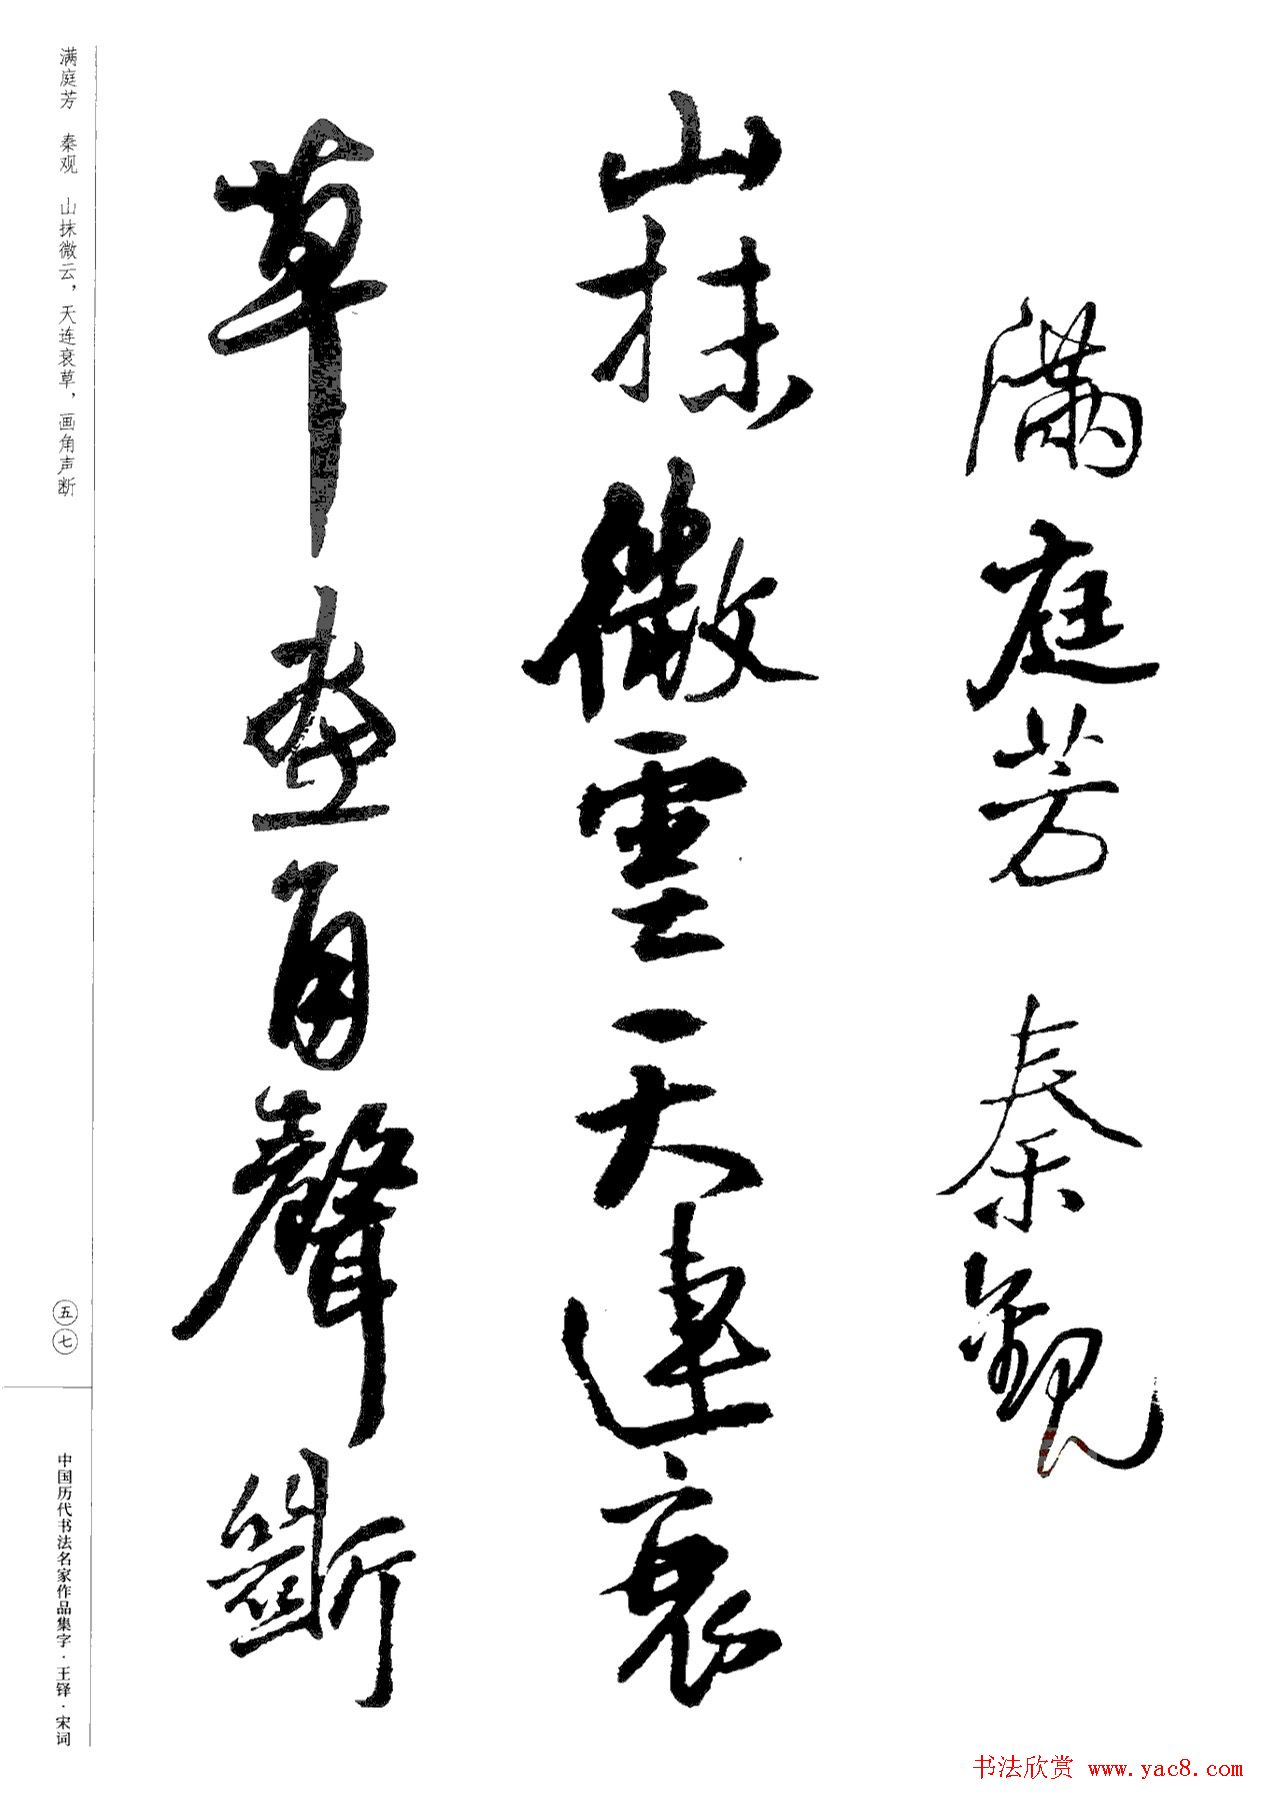 滿庭芳 秦觀
山抹微雲天連衰
草畫角聲斷
满庭芳 秦观 山抹微云，天连衰草，画角声断
五七
中国历代书法名家作品集字·王铎·宋词
书法欣赏 www.yac8.com